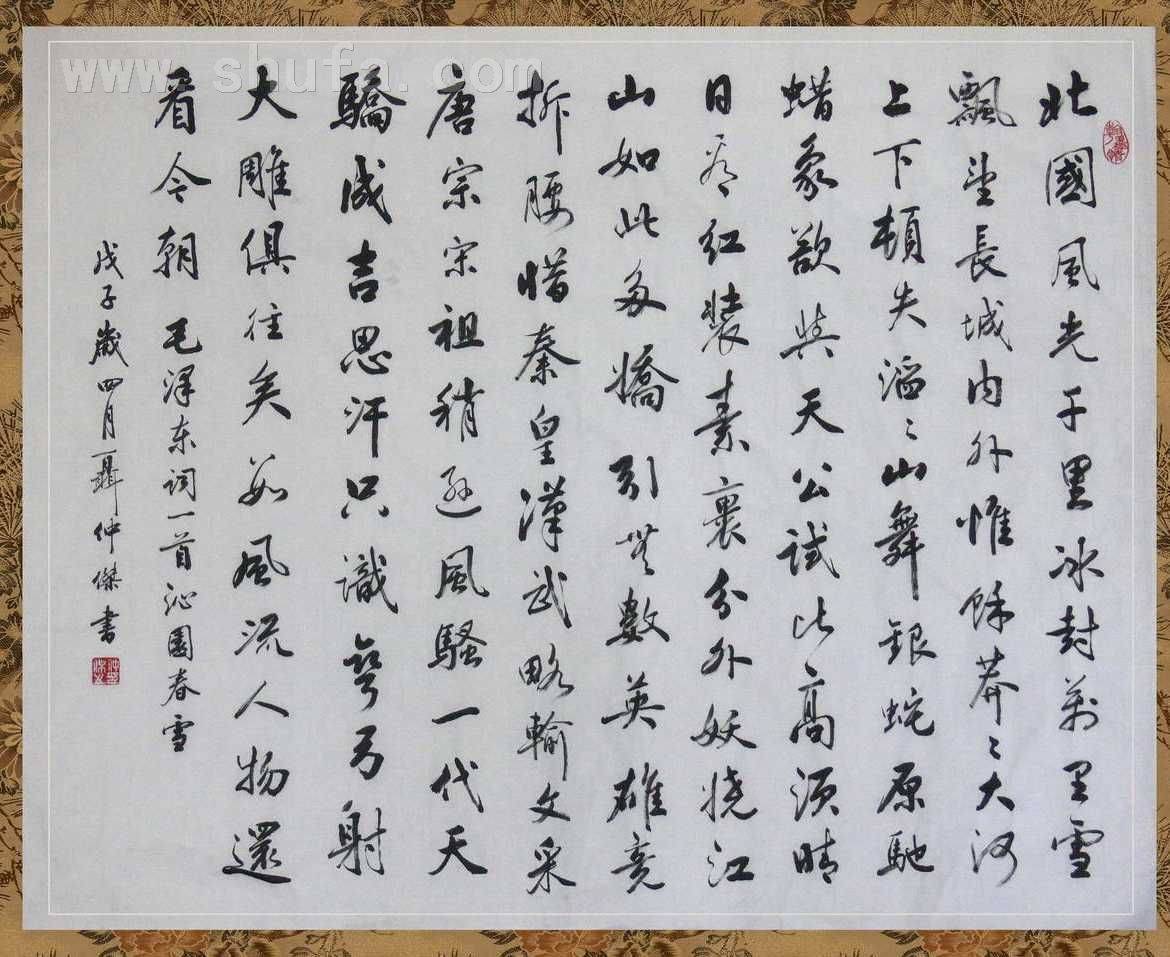 www.shufa.com
北國風光千里冰封萬里雪
飄望長城内外惟餘莽〻大河
上下頓失滔〻山舞銀蛇原馳
蜡象欲與天公試比〻高須晴
日看红裝素裹分外妖娆江
山如此多嬌引無數英雄竞
折腰惜秦皇漢武略輸文采
唐宗宋祖稍逊風騷一代天
驕成吉思汗只識彎弓射
大雕俱往矣数風流人物還
看今朝 毛泽东词一首沁園春雪
戊子歲四月聶仲傑書